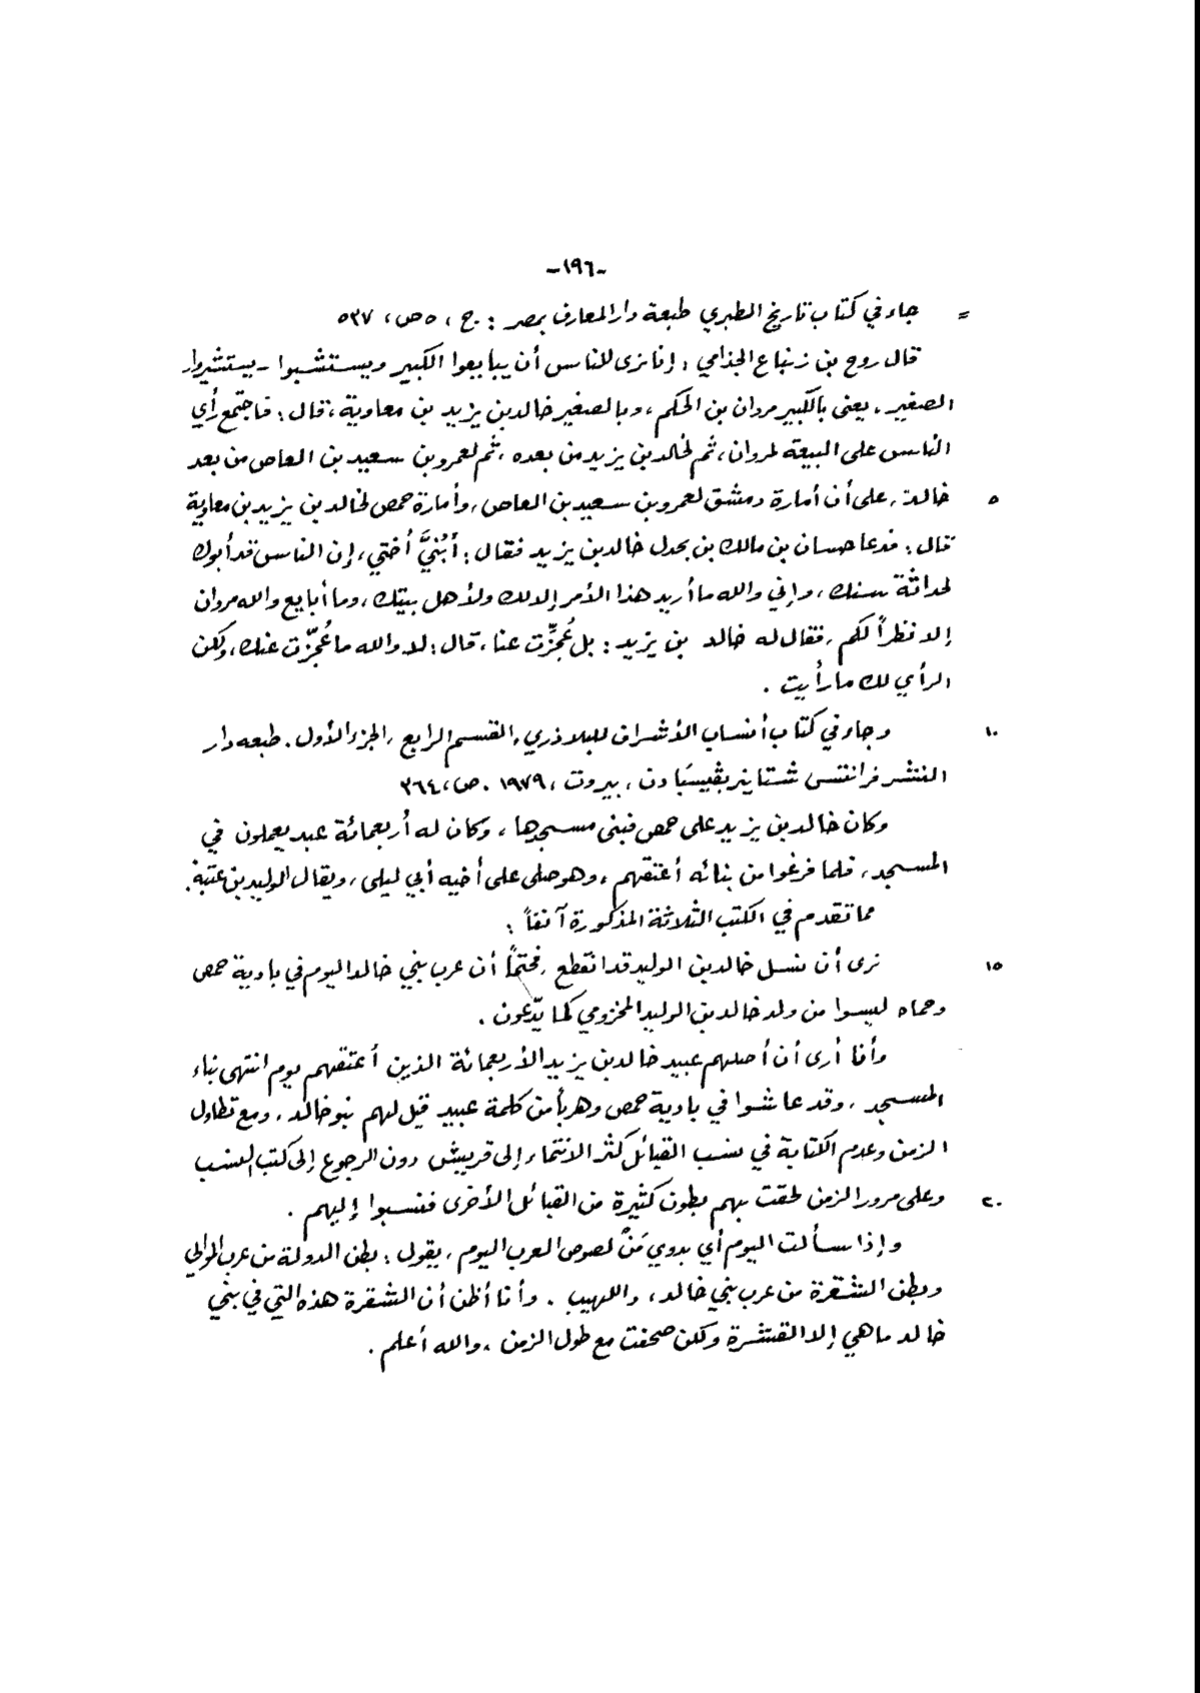 -١٩٦-
= جاء في كتاب تاريخ الطبري طبعة دار المعارف بمصر : ج ، ٥ ص ، ٥٣٧
قال روح بن زنباع الجذامي : إنا نرى للناس أن يبايعوا الكبير ويستشبوا - يستشيروا -
الصغير ، يعني بالكبير مروان بن الحكم ، وبالصغير خالد بن يزيد بن معاوية ، قال : فاجتمع رأي
الناس على البيعة لمروان ، ثم لخالد بن يزيد من بعده ، ثم لعمرو بن سعيد بن العاص من بعد
٥ خالد ، على أن أمارة دمشق لعمرو بن سعيد بن العاص ، وأمارة حمص لخالد بن يزيد بن معاوية
قال : فدعا حسان بن مالك بن بحدل خالد بن يزيد فقال : أبُنيَّ أُختي ، إن الناس قد أبوك
لحداثة سنك ، وإني والله ما أريد هذا الأمر إلا لك ولأهل بيتك ، وما أبايع والله مروان
إلا نظراً لكم ، فقال له خالد بن يزيد : بل عُجِّزت عنا ، قال : لا والله ما عُجِّزت عنك ، ولكن
الرأي لك ما رأيت .
١٠ وجاء في كتاب أنساب الأشراف للبلاذري ، القسم الرابع ، الجزء الأول . طبعه دار
النشر فرانتس شتاينر بڤيسبادن ، بيروت ، ١٩٧٩ . ص ، ٣٦٤
وكان خالد بن يزيد على حمص فبنى مسجدها ، وكان له أربعمائة عبد يعملون في
المسجد ، فلما فرغوا من بنائه أعتقهم ، وهو صلى على أخيه أبي ليلى ، ويقال الوليد بن عتبة .
مما تقدم في الكتب الثلاثة المذكورة آنفاً :
١٥ نرى أن نسل خالد بن الوليد قد انقطع ، فحتماً أن عرب بني خالد اليوم في بادية حمص
وحماه ليسوا من ولد خالد بن الوليد المخزومي كما يدّعون .
وأنا أرى أن أصلهم عبيد خالد بن يزيد الأربعمائة الذين أعتقهم يوم انتهى بناء
المسجد ، وقد عاشوا في بادية حمص وهرباً من كلمة عبيد قيل لهم بنو خالد ، ومع تطاول
الزمن وعدم الكتابة في نسب القبائل كثر الانتماء إلى قريش دون الرجوع إلى كتب النسب
٢٠ وعلى مرور الزمن لحقت بهم بطون كثيرة من القبائل الأخرى فنسبوا إليهم .
وإذا سألت اليوم أي بدوي مَنْ لصوص العرب اليوم ، يقول : بطن الدولة من عرب الموالي
وبطن الشقرة من عرب بني خالد ، واللهيب . وأنا أظن أن الشقرة هذه التي في بني
خالد ما هي إلا القشرة ولكن صحفت مع طول الزمن ، والله أعلم .